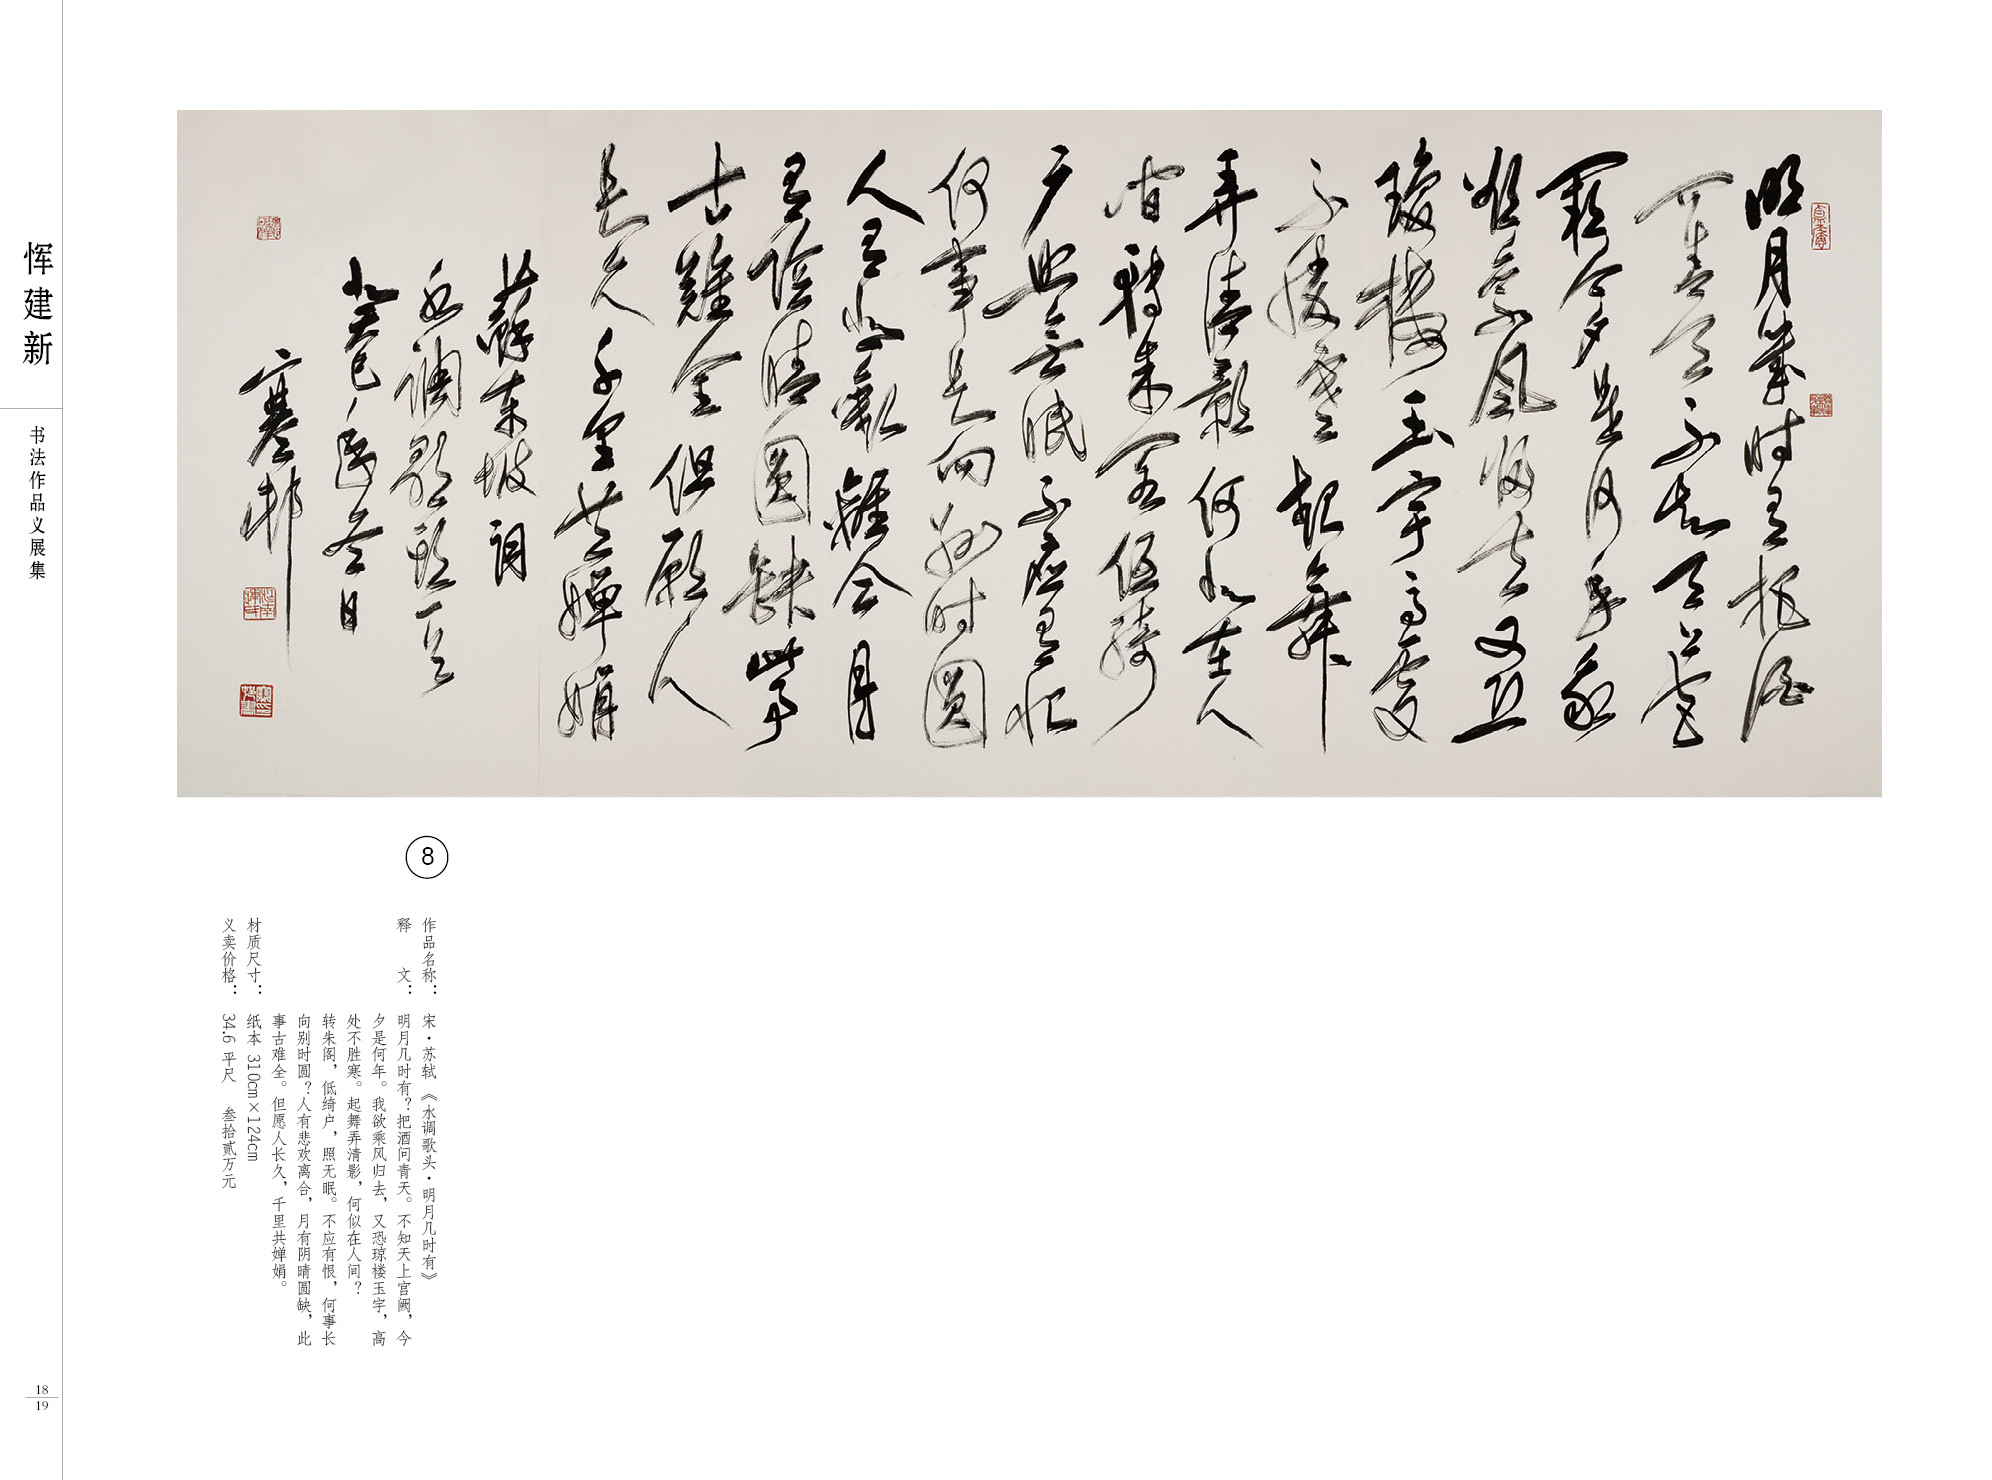 恽建新
书法作品义展集
明月幾时有把酒
问青天不知天上宫
阙今夕是何年我
欲乘风归去又恐
瓊樓玉宇高處
不勝寒起舞
弄清影何似在人
间轉朱阁低绮
户照無眠不應有恨
何事長向别时圓
人有悲歡離合月
有陰晴圓缺此事
古難全但願人
長久千里共嬋娟
蘇東坡词
水调歌头一首
癸巳年冬日
寒邨
8
作品名称：宋·苏轼《水调歌头·明月几时有》
释文：明月几时有？把酒问青天。不知天上宫阙，今
夕是何年。我欲乘风归去，又恐琼楼玉宇，高
处不胜寒。起舞弄清影，何似在人间？
转朱阁，低绮户，照无眠。不应有恨，何事长
向别时圆？人有悲欢离合，月有阴晴圆缺，此
事古难全。但愿人长久，千里共婵娟。
材质尺寸：纸本 310cm×124cm
义卖价格：34.6 平尺 叁拾贰万元
18
19